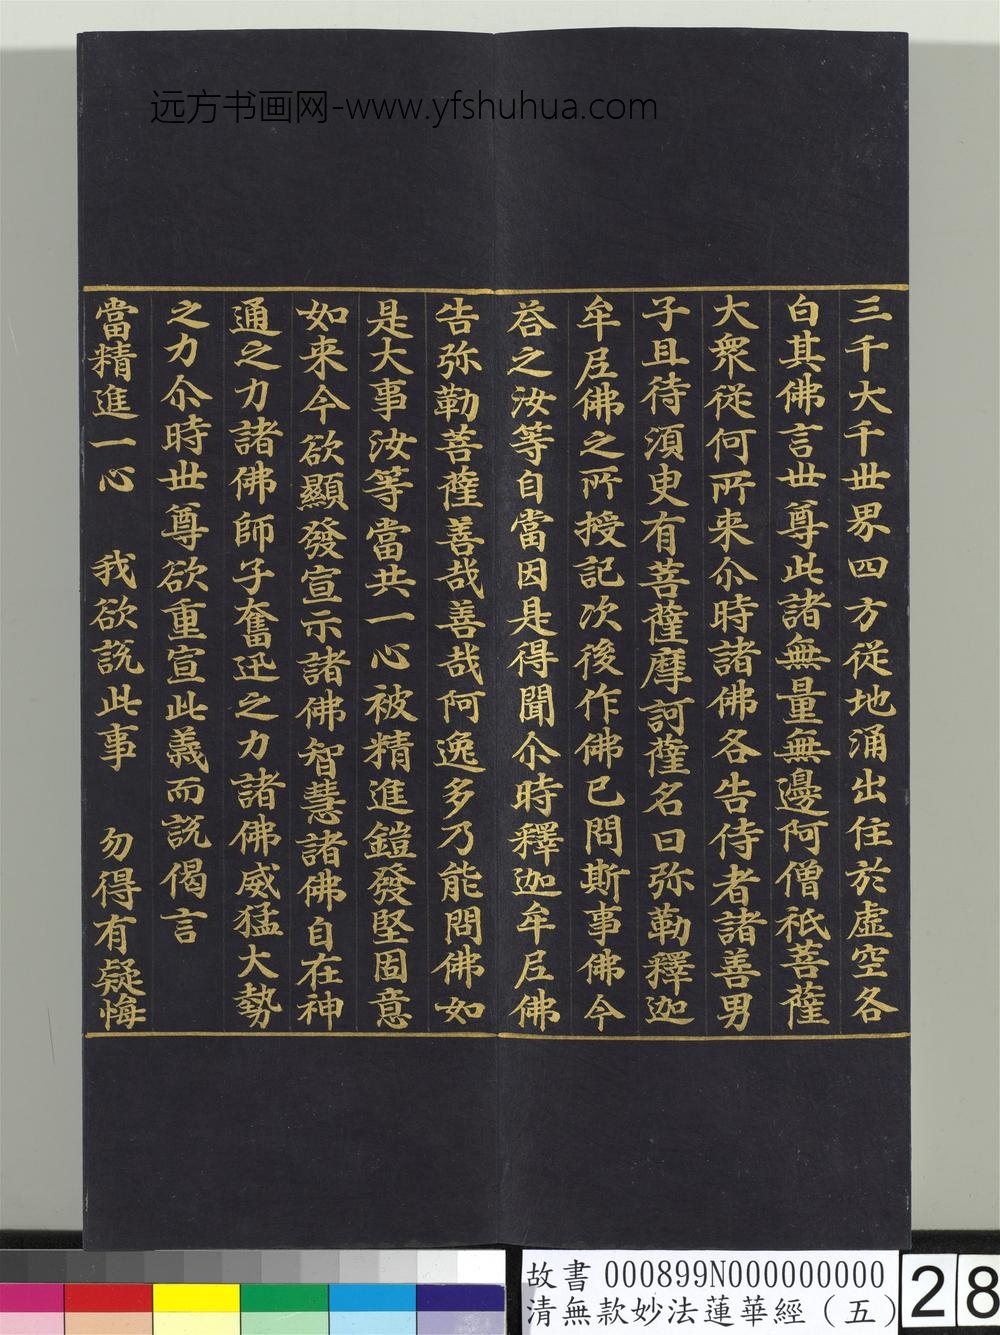 远方书画网-www.yfshuhua.com
三千大千丗界四方從地涌出住於虛空各
白其佛言丗尊此諸無量無邊阿僧祇菩薩
大衆從何所来尒時諸佛各告侍者諸善男
子且待須臾有菩薩摩訶薩名曰弥勒釋迦
牟尼佛之所授記次後作佛已問斯事佛今
荅之汝等自當因是得聞尒時釋迦牟尼佛
告弥勒菩薩善哉善哉阿逸多乃能問佛如
是大事汝等當共一心被精進鎧發堅固意
如来今欲顯發宣示諸佛智慧諸佛自在神
通之力諸佛師子奮迅之力諸佛威猛大勢
之力尒時丗尊欲重宣此義而說偈言
當精進一心 我欲說此事 勿得有疑悔
故書 000899N000000000
清無款妙法蓮華經（五）
28